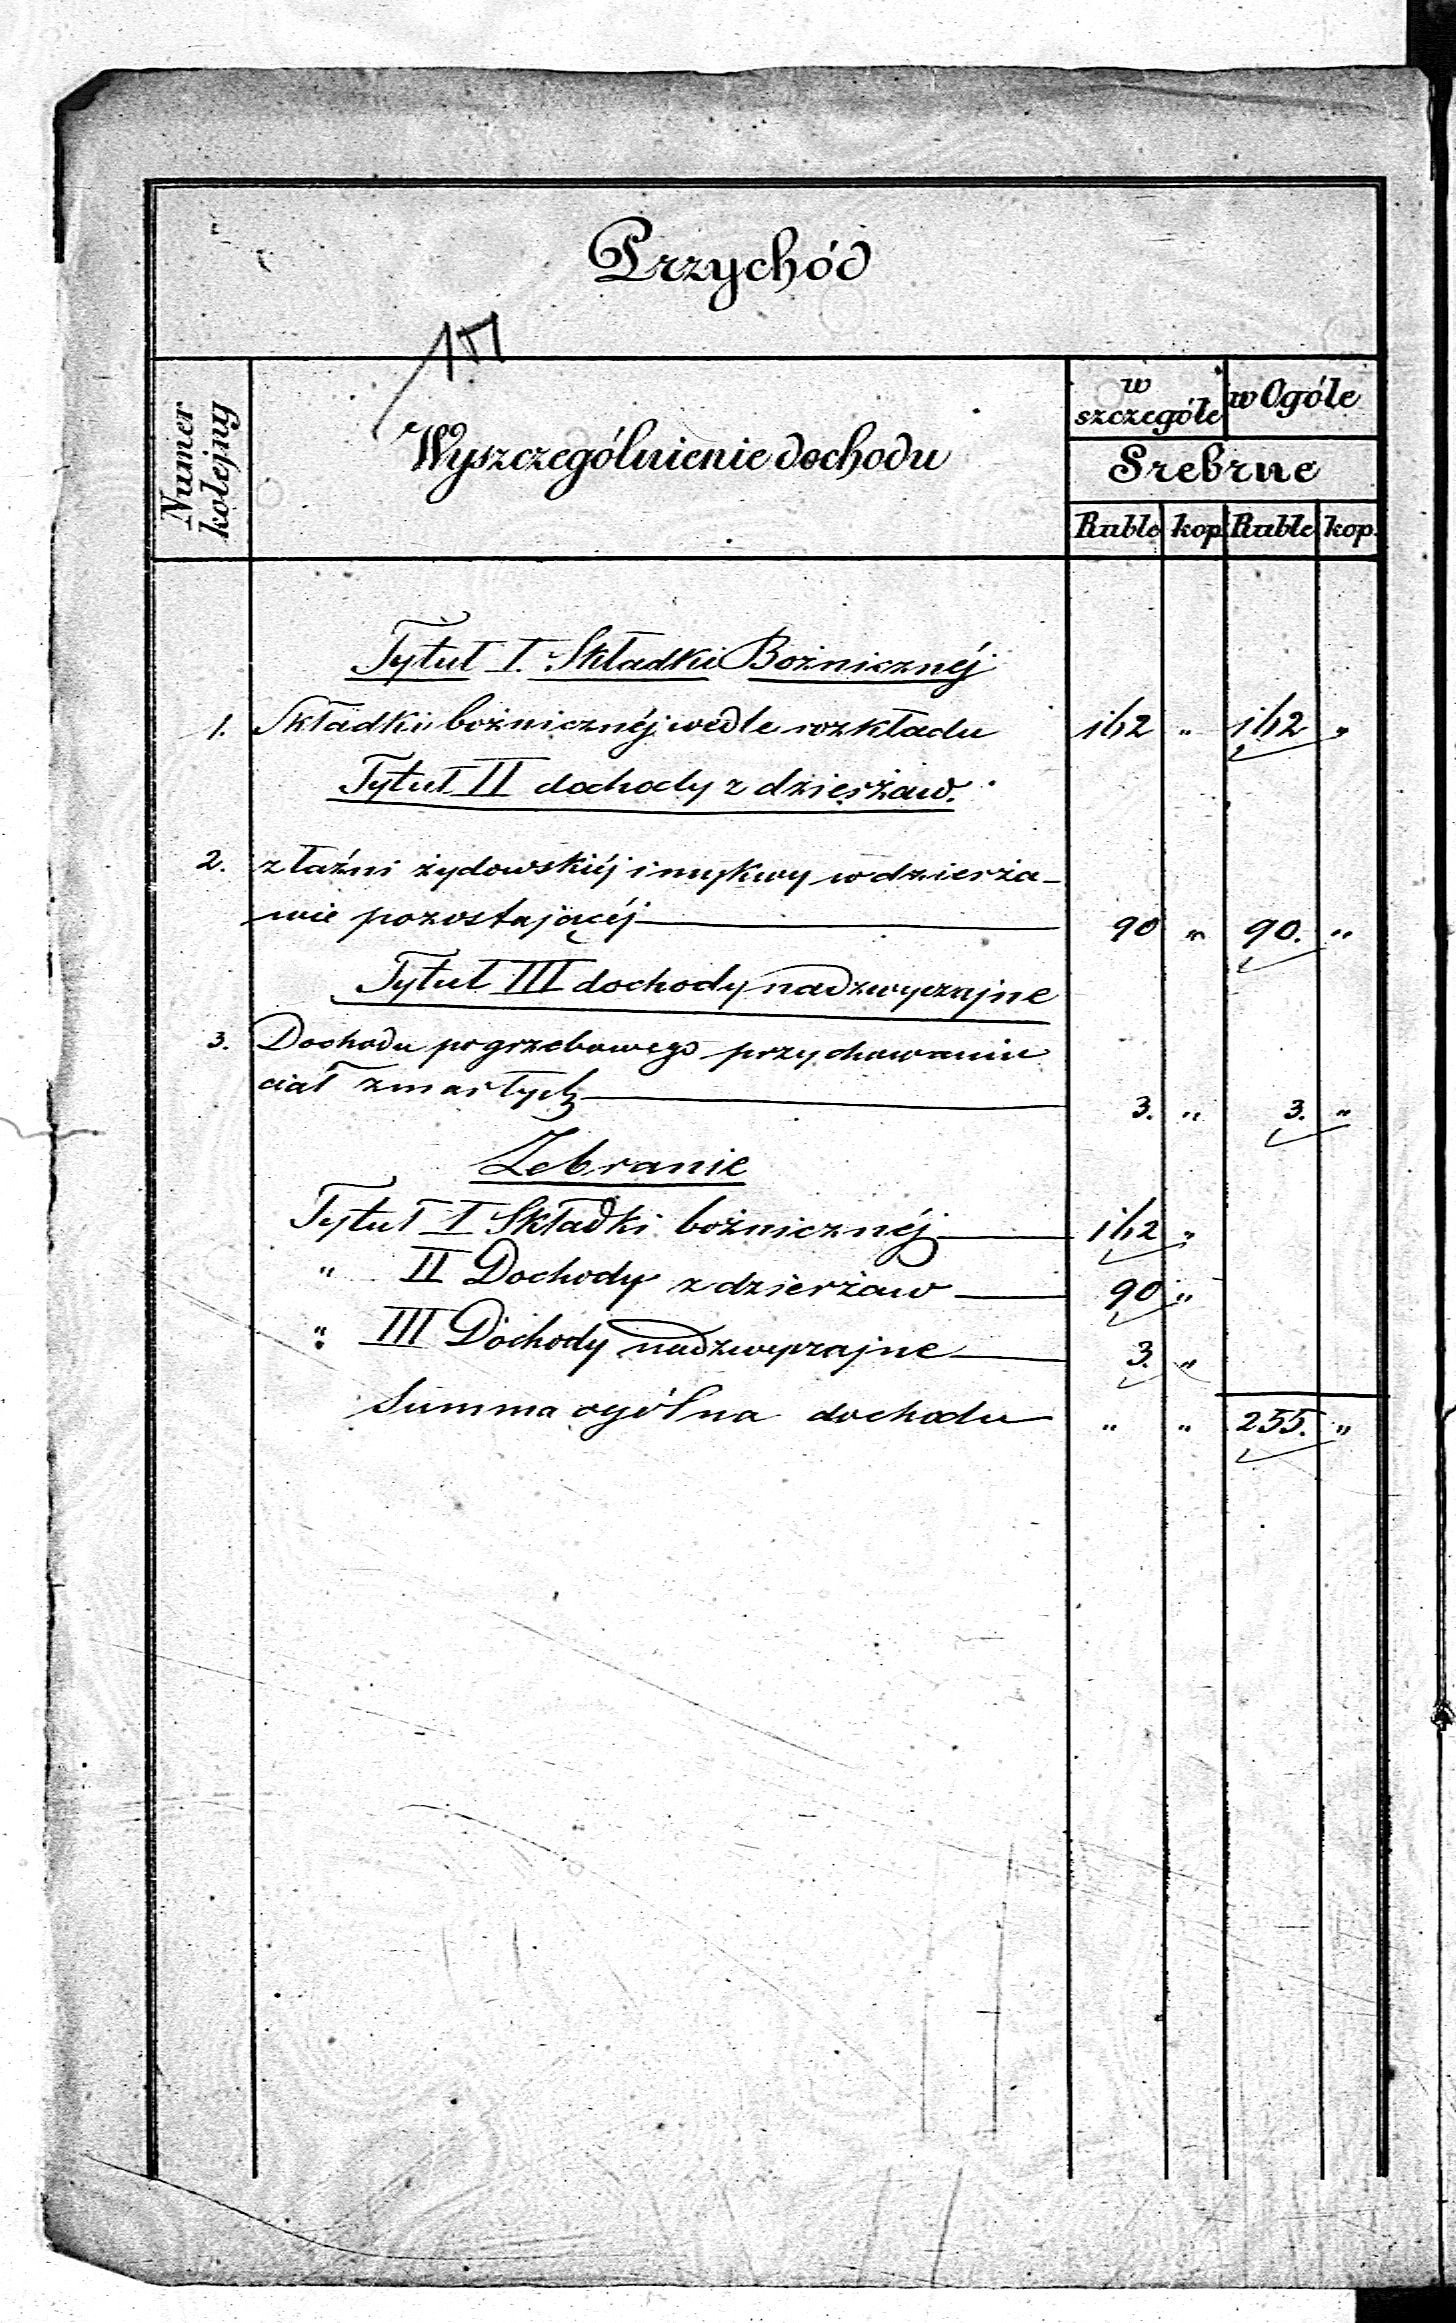 Przychód
Numer kolejny
Wyszczególnienie dochodu
w szczególe
w Ogóle
Srebrne
Ruble kop. Ruble kop.
Tytuł I. Składki Bożnicznéj
1. Składki bożnicznéj wedle rozkładu 162 " 162 "
Tytuł II dochody z dzierżaw.
2. z łaźni żydowskiéj i mykwy w dzierża-
wie pozostającéj 90 " 90. "
Tytuł III dochody nadzwyczajne
3. Dochodu pogrzebowego przy chowaniu
ciał zmarłych 3. " 3. "
Zebranie
Tytuł I Składki bożnicznéj 162 "
" II Dochody z dzierżaw 90 "
" III Dochody nadzwyczajne 3. "
Summa ogólna dochodu " " 255. "